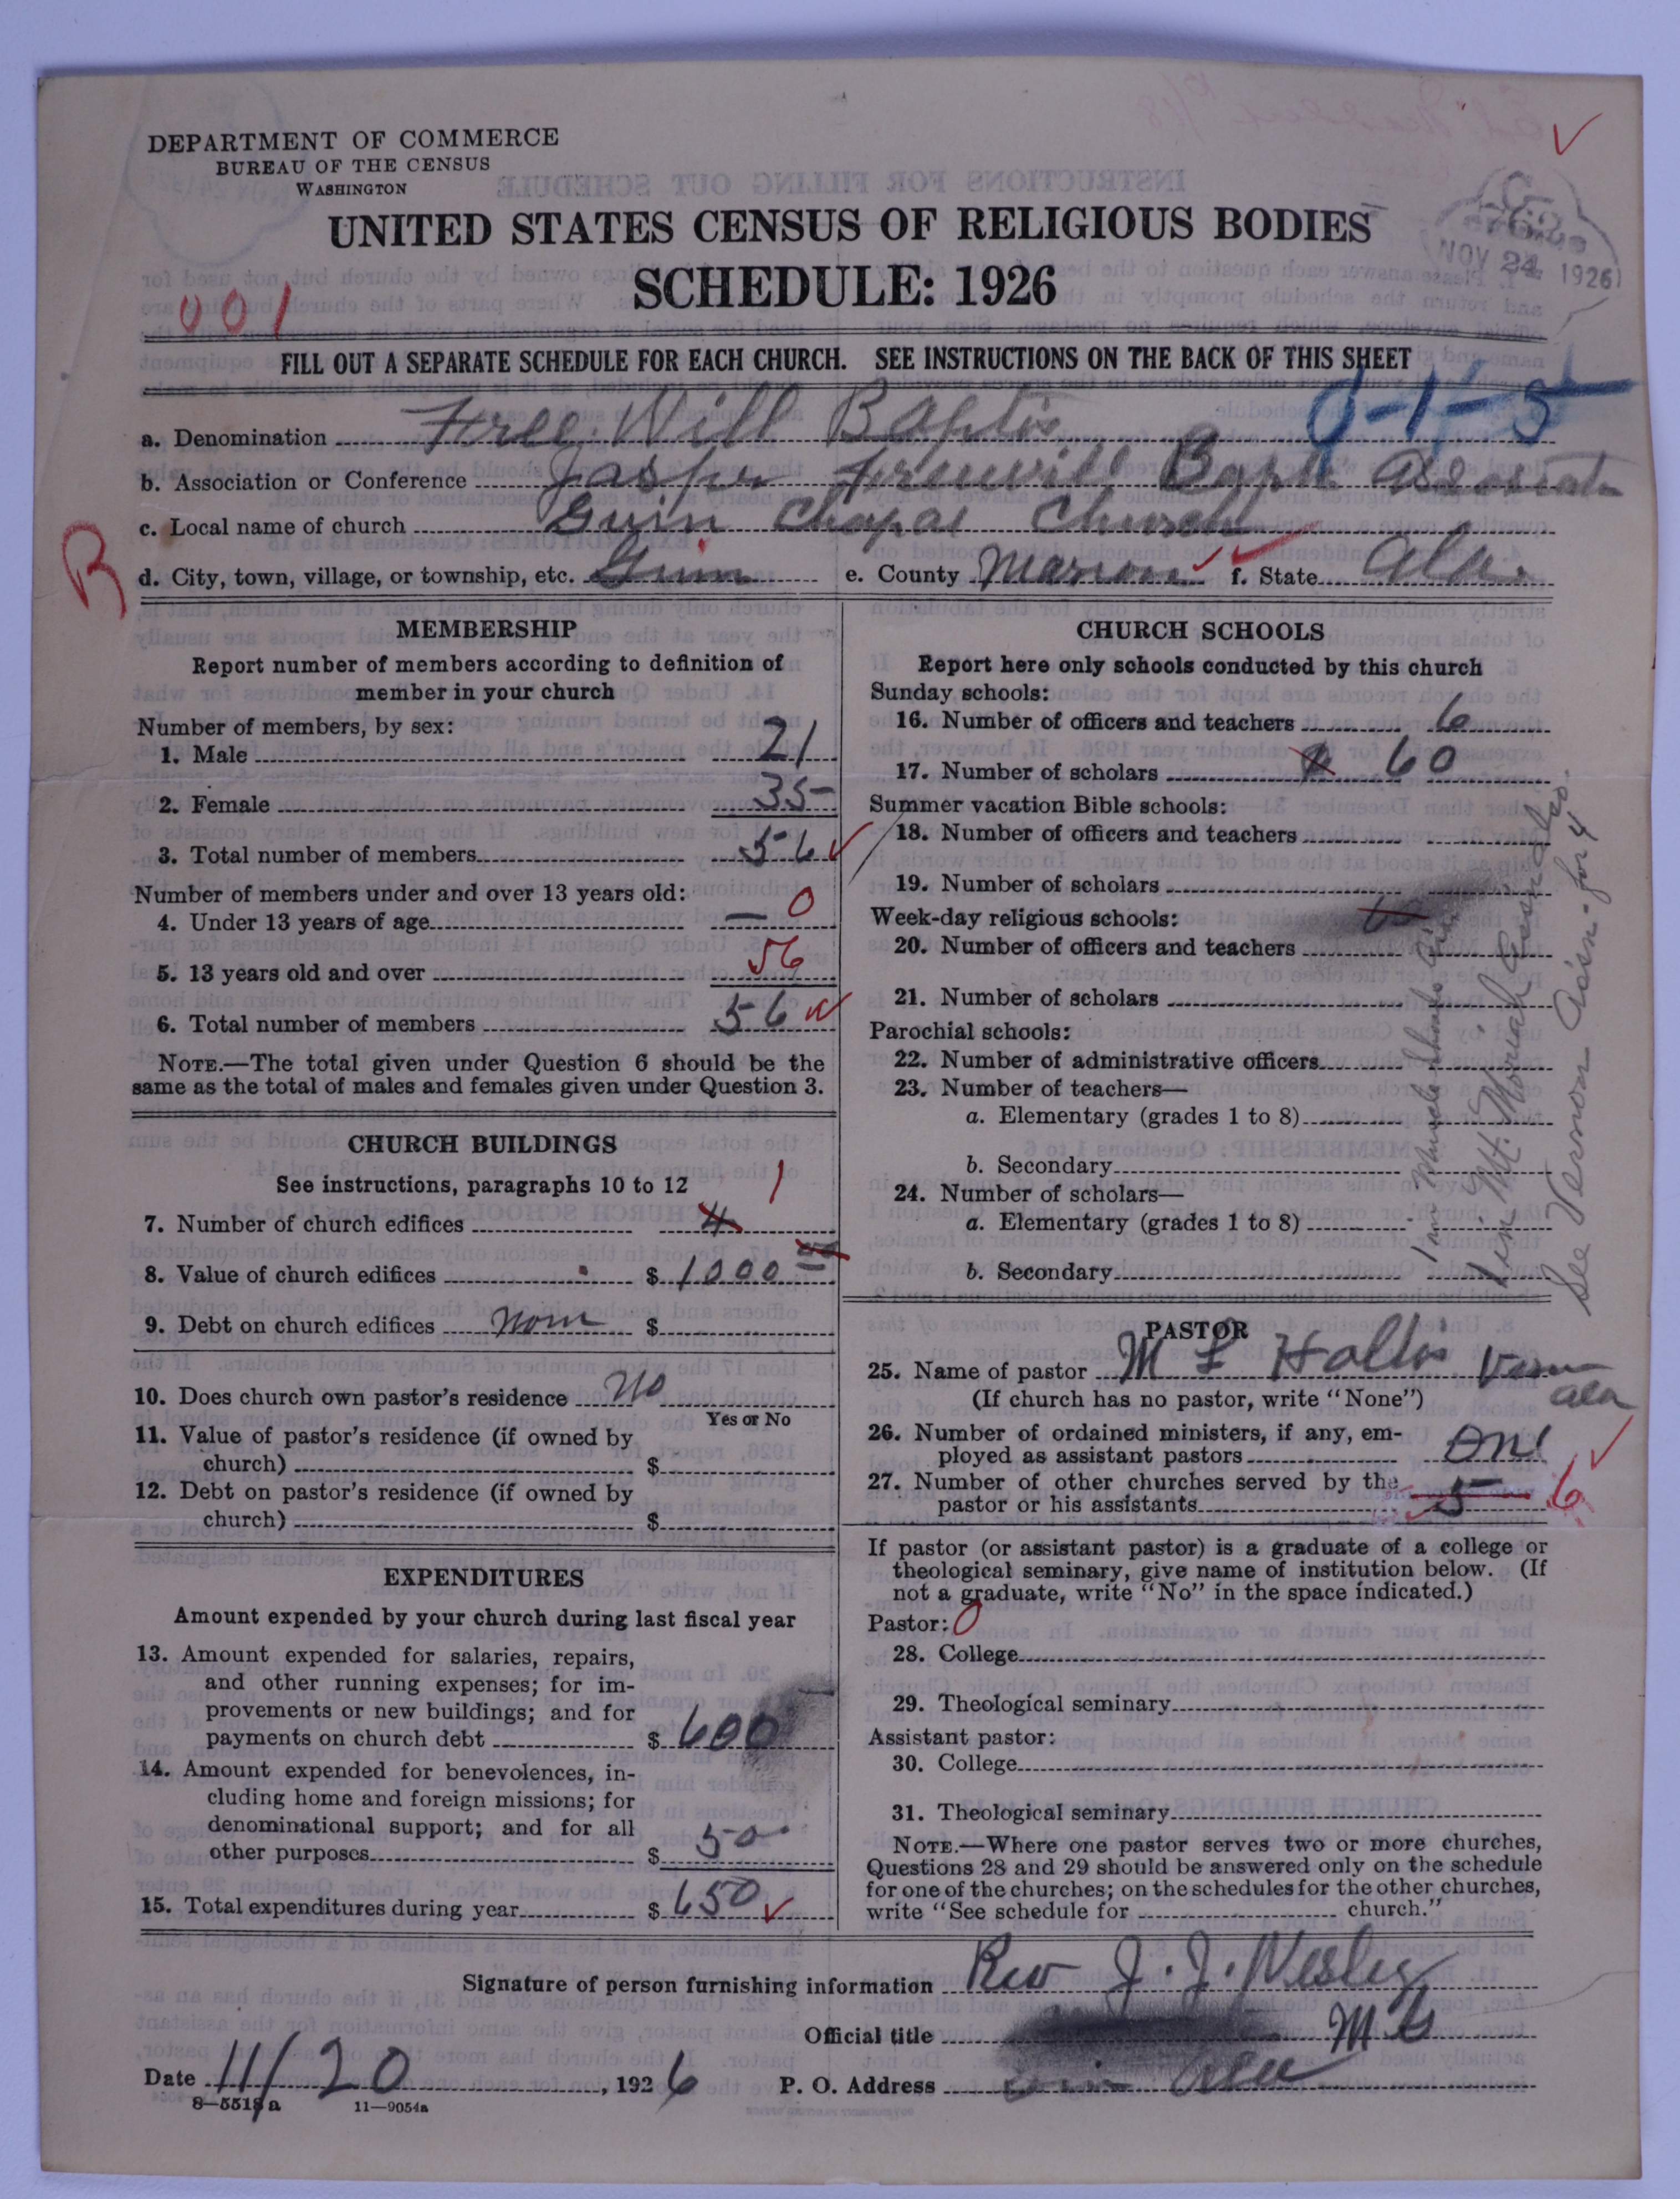 DEPARTMENT OF COMMERCE
BUREAU OF THE CENSUS
WASHINGTON
UNITED STATES CENSUS OF RELIGIOUS BODIES
SCHEDULE: 1926
NOV 24 1926
001
FILL OUT A SEPARATE SCHEDULE FOR EACH CHURCH. SEE INSTRUCTIONS ON THE BACK OF THIS SHEET
a. Denomination Free Will Baptis
b. Association or Conference Jasper Freewill
c. Local name of church Guin Chapal Church
B
d. City, town, village, or township, etc. Guin e. County Marion f. State Ala.
MEMBERSHIP
Report number of members according to definition of
member in your church
Number of members, by sex:
1. Male 21
2. Female 35
3. Total number of members 56
Number of members under and over 13 years old:
4. Under 13 years of age — 0
5. 13 years old and over 56
6. Total number of members 56
NOTE.—The total given under Question 6 should be the
same as the total of males and females given under Question 3.
CHURCH BUILDINGS
See instructions, paragraphs 10 to 12
7. Number of church edifices 4 1
8. Value of church edifices $ 1000
9. Debt on church edifices $
10. Does church own pastor's residence no
Yes or No
11. Value of pastor's residence (if owned by
church) $
12. Debt on pastor's residence (if owned by
church) $
EXPENDITURES
Amount expended by your church during last fiscal year
13. Amount expended for salaries, repairs,
and other running expenses; for im-
provements or new buildings; and for
payments on church debt $ 600
14. Amount expended for benevolences, in-
cluding home and foreign missions; for
denominational support; and for all
other purposes $ 50
15. Total expenditures during year $ 650
CHURCH SCHOOLS
Report here only schools conducted by this church
Sunday schools:
16. Number of officers and teachers 6
17. Number of scholars 60
Summer vacation Bible schools:
18. Number of officers and teachers
19. Number of scholars
Week-day religious schools:
20. Number of officers and teachers
21. Number of scholars
Parochial schools:
22. Number of administrative officers
23. Number of teachers—
a. Elementary (grades 1 to 8)
b. Secondary
24. Number of scholars—
a. Elementary (grades 1 to 8)
b. Secondary
1 in Mt. Moriah
See Vernon Ass'n - for 4
PASTOR
25. Name of pastor M L Hollis
Ala
(If church has no pastor, write "None")
26. Number of ordained ministers, if any, em-
ployed as assistant pastors One
27. Number of other churches served by the
pastor or his assistants 5 6
If pastor (or assistant pastor) is a graduate of a college or
theological seminary, give name of institution below. (If
not a graduate, write "No" in the space indicated.)
Pastor: 0
28. College
29. Theological seminary
Assistant pastor:
30. College
31. Theological seminary
NOTE.—Where one pastor serves two or more churches,
Questions 28 and 29 should be answered only on the schedule
for one of the churches; on the schedules for the other churches,
write "See schedule for church."
Signature of person furnishing information Rev J. J. Wesley
Official title
Date 11/20, 1926 P. O. Address Ala
8—5518a 11—9054a